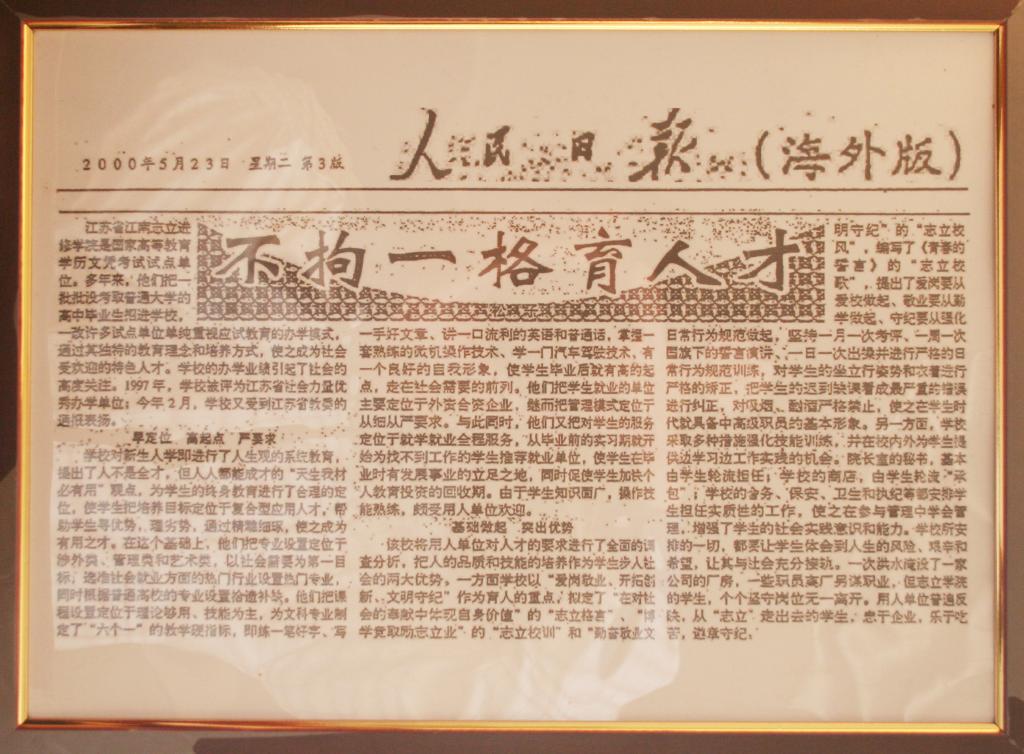 2000年5月23日 星期二 第3版
人民日报（海外版）
不拘一格育人才
江苏省江南志立进
修学院是国家高等教育
学历文凭考试试点单
位。多年来，他们把一
批批没考取普通大学的
高中毕业生招进学校，
一改许多试点单位单纯重视应试教育的办学模式，
通过其独特的教育理念和培养方式，使之成为社会
受欢迎的特色人才。学校的办学业绩引起了社会的
高度关注。1997年，学校被评为江苏省社会力量优
秀办学单位；今年2月，学校又受到江苏省教委的
通报表扬。
早定位 高起点 严要求
学校对新生入学即进行了人生观的系统教育，
提出了人不是全才，但人人都能成才的“天生我材
必有用”观点，为学生的终身教育进行了合理的定
位，使学生把培养目标定位于复合型应用人才，帮
助学生寻优势，理劣势，通过精雕细琢，使之成为
有用之才。在这个基础上，他们把专业设置定位于
涉外类、管理类和艺术类，以社会需要为第一目
标，选准社会就业方面的热门行业设置热门专业，
同时根据普通高校的专业设置拾遗补缺。他们把课
程设置定位于理论够用、技能为主，为文科专业制
定了“六个一”的教学硬指标，即练一笔好字、写
一手好文章、讲一口流利的英语和普通话，掌握一
套熟练的微机操作技术、学一门汽车驾驶技术、有
一个良好的自我形象，使学生毕业后就有高的起
点，走在社会需要的前列。他们把学生就业的单位
主要定位于外资合资企业，继而把管理模式定位于
从细从严要求。与此同时，他们又把对学生的服务
定位于就学就业全程服务，从毕业前的实习期就开
始为找不到工作的学生推荐就业单位，使学生在毕
业时有发展事业的立足之地，同时促使学生加快个
人教育投资的回收期。由于学生知识面广，操作技
能熟练，颇受用人单位欢迎。
基础做起 突出优势
该校将用人单位对人才的要求进行了全面的调
查分析，把人的品质和技能的培养作为学生步入社
会的两大优势。一方面学校以“爱岗敬业、开拓创
新、文明守纪”作为育人的重点，拟定了“在对社
会的奉献中体现自身价值”的“志立格言”、“博
学竞取励志立业”的“志立校训”和“勤奋敬业文
明守纪”的“志立校
风”，编写了《青春的
誓言》的“志立校
歌”，提出了爱岗要从
爱校做起、敬业要从勤
学做起、守纪要从强化
日常行为规范做起，坚持一月一次考评、一周一次
国旗下的誓言演讲、一日一次出操并进行严格的日
常行为规范训练，对学生的坐立行姿势和衣着进行
严格的矫正，把学生的迟到缺课看成最严重的错误
进行纠正，对吸烟、酗酒严格禁止，使之在学生时
代就具备中高级职员的基本形象。另一方面，学校
采取多种措施强化技能训练，并在校内外为学生提
供边学习边工作实践的机会。院长室的秘书，基本
由学生轮流担任；学校的商店，由学生轮流“承
包”；学校的舍务、保安、卫生和执纪等都安排学
生担任实质性的工作，使之在参与管理中学会管
理，增强了学生的社会实践意识和能力。学校所安
排的一切，都要让学生体会到人生的风险、艰辛和
希望，让其与社会充分接轨。一次洪水淹没了一家
公司的厂房，一些职员离厂另谋职业，但志立学院
的学生，个个坚守岗位无一离开。用人单位普遍反
映，从“志立”走出去的学生，忠于企业，乐于吃
苦，遵章守纪。